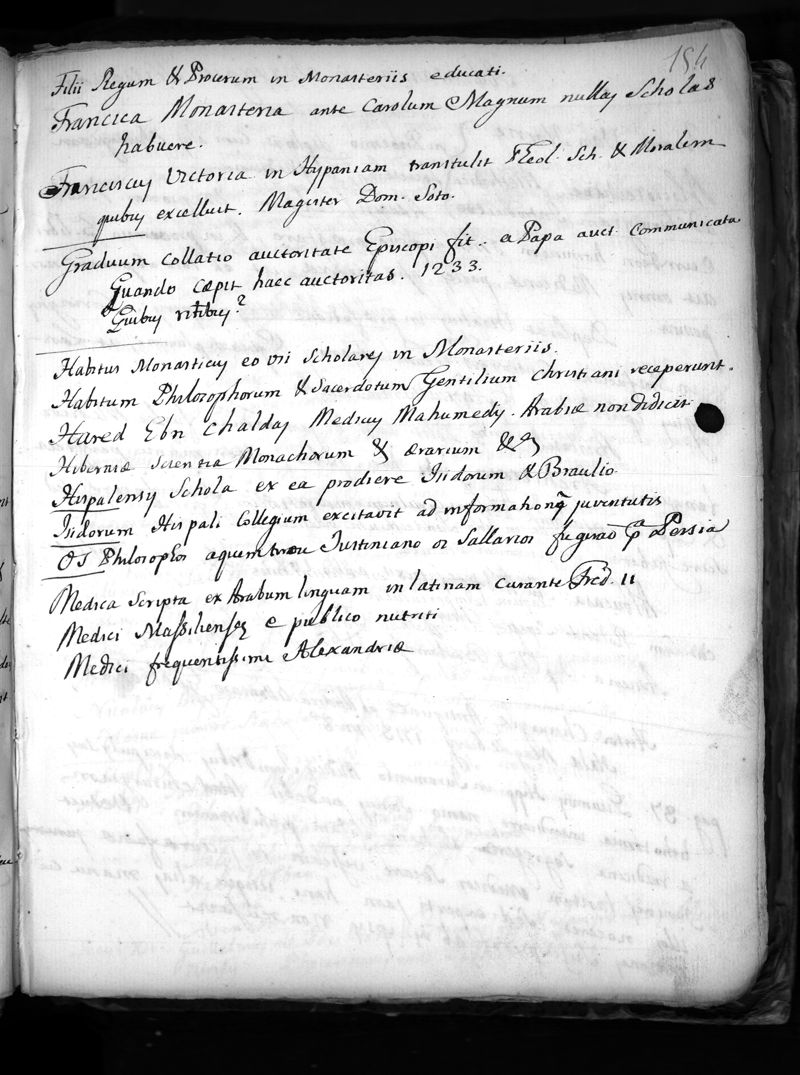 154
Filii Regum & Procerum in Monasteriis educati.
Francica Monasteria ante Carolum Magnum nullas Scholas
habuere.
Franciscus Victoria in Hyspaniam transtulit Theol. Sch. & Moralem
quibus excelluit. Magister Dom. Soto.
Graduum collatio auctoritate Episcopi fit.. a Papa auct. communicata
Quando cæpit haec auctoritas. 1233.
Quibus ritibus?
Habitus Monasticus eo usi Scholares in Monasteriis.
Habitum Philosophorum & Sacerdotum Gentilium Christiani receperunt.
Hared Ebn Chaldas Medicus Mahumedis. Arabiæ non didicit.
Hiberniæ Scientia Monachorum & ærarium
Hispalensis Schola ex ea prodiere Isidorum & Braulio.
Isidorum Hispali Collegium excitavit ad informationē juventutis
Philosophos Justiniano Persia
Medica Scripta ex Arabum linguam in latinam curante Fred. II
Medici Massilienses e publico nutriti
Medici frequentissimi Alexandriæ